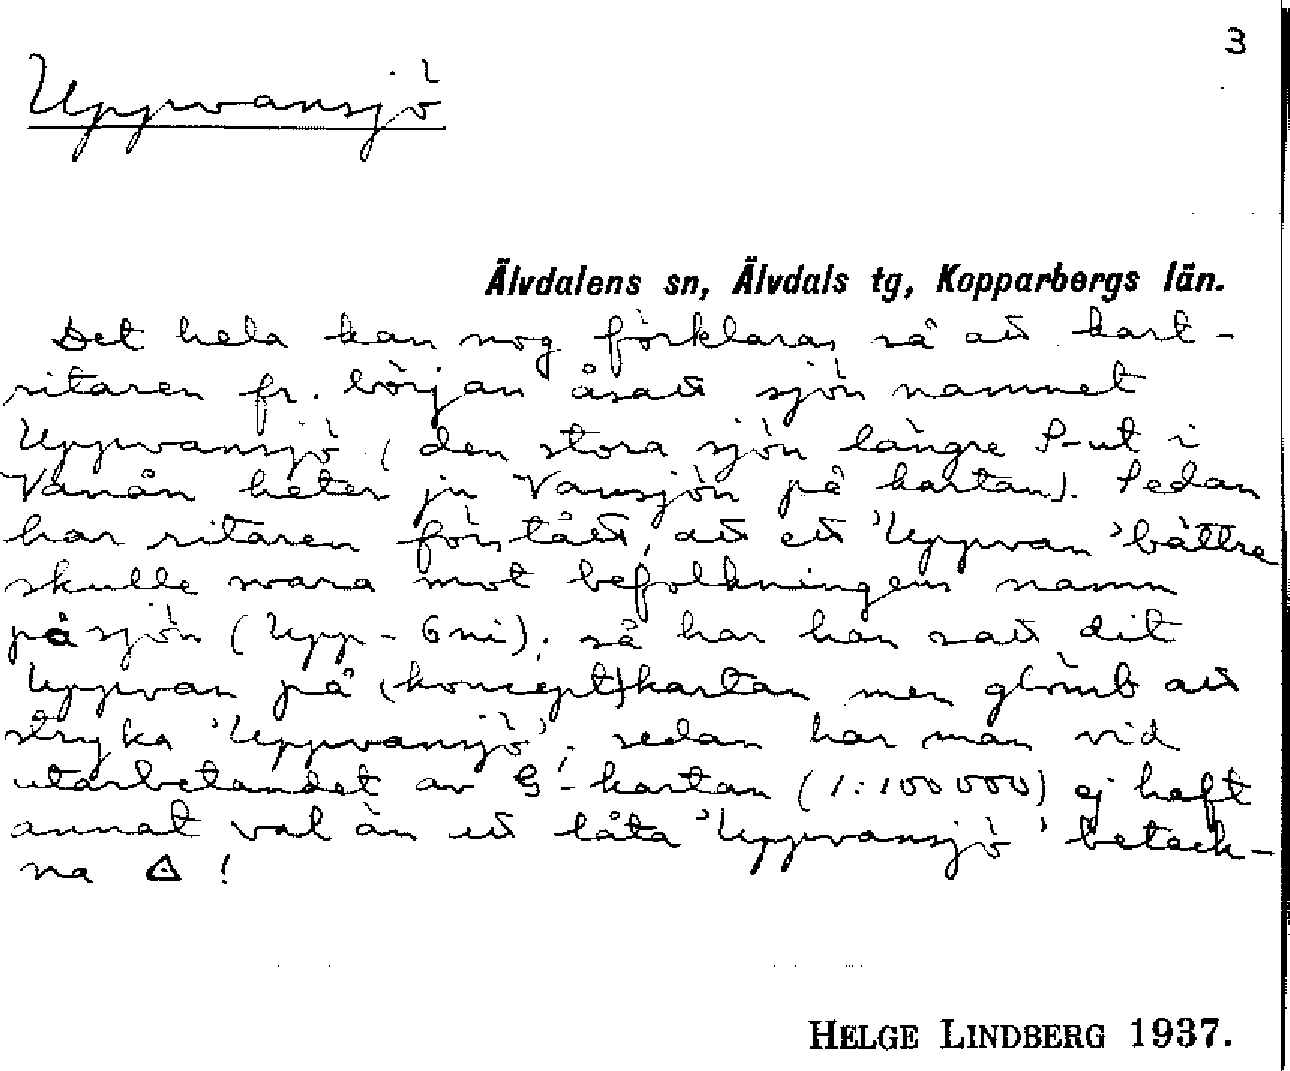 3
Uppvansjö
Älvdalens sn, Älvdals tg, Kopparbergs län.
Det hela kan nog förklaras så att kart-
ritaren fr. början åsatt sjön namnet
Uppvansjö (den stora sjön längre S-ut i
Vanån heter ju Vansjön på kartan). Sedan
har ritaren förstått, att ett 'Uppvan' bättre
skulle svara mot befolkningens namn
på sjön (Upp-), så har han satt dit
Uppvan på (koncept)kartan men glömt att
stryka 'Uppvansjö'; sedan har man vid
utarbetandet av G-kartan (1:100000) ej haft
annat val än att låta 'Uppvansjö' beteck-
na !
HELGE LINDBERG 1937.